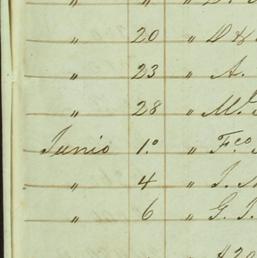 " 20 " D
" 23 " A.
" 28 " M.
Junio 1.º " Fco
" 4 " J.
" 6 " G. J.